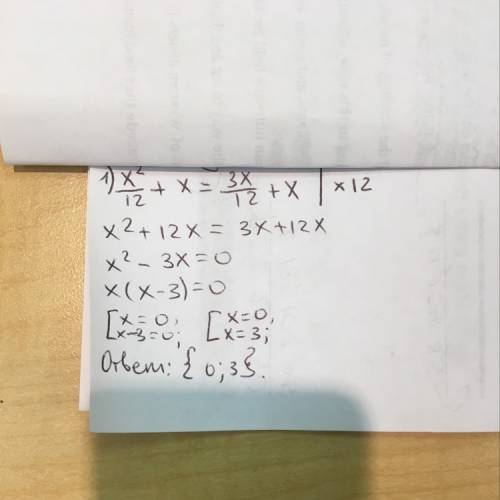 1) x²/12 + x = 3x/12 + x | ×12
x² + 12x = 3x + 12x
x² - 3x = 0
x(x-3) = 0
[x=0, [x=0,
x-3=0; x=3;
Ответ: {0;3}.